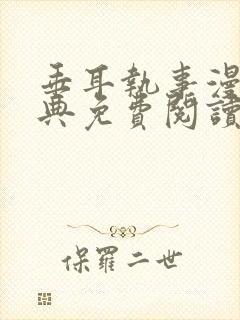 垂耳執事漫
典免費閱讀
保羅二世